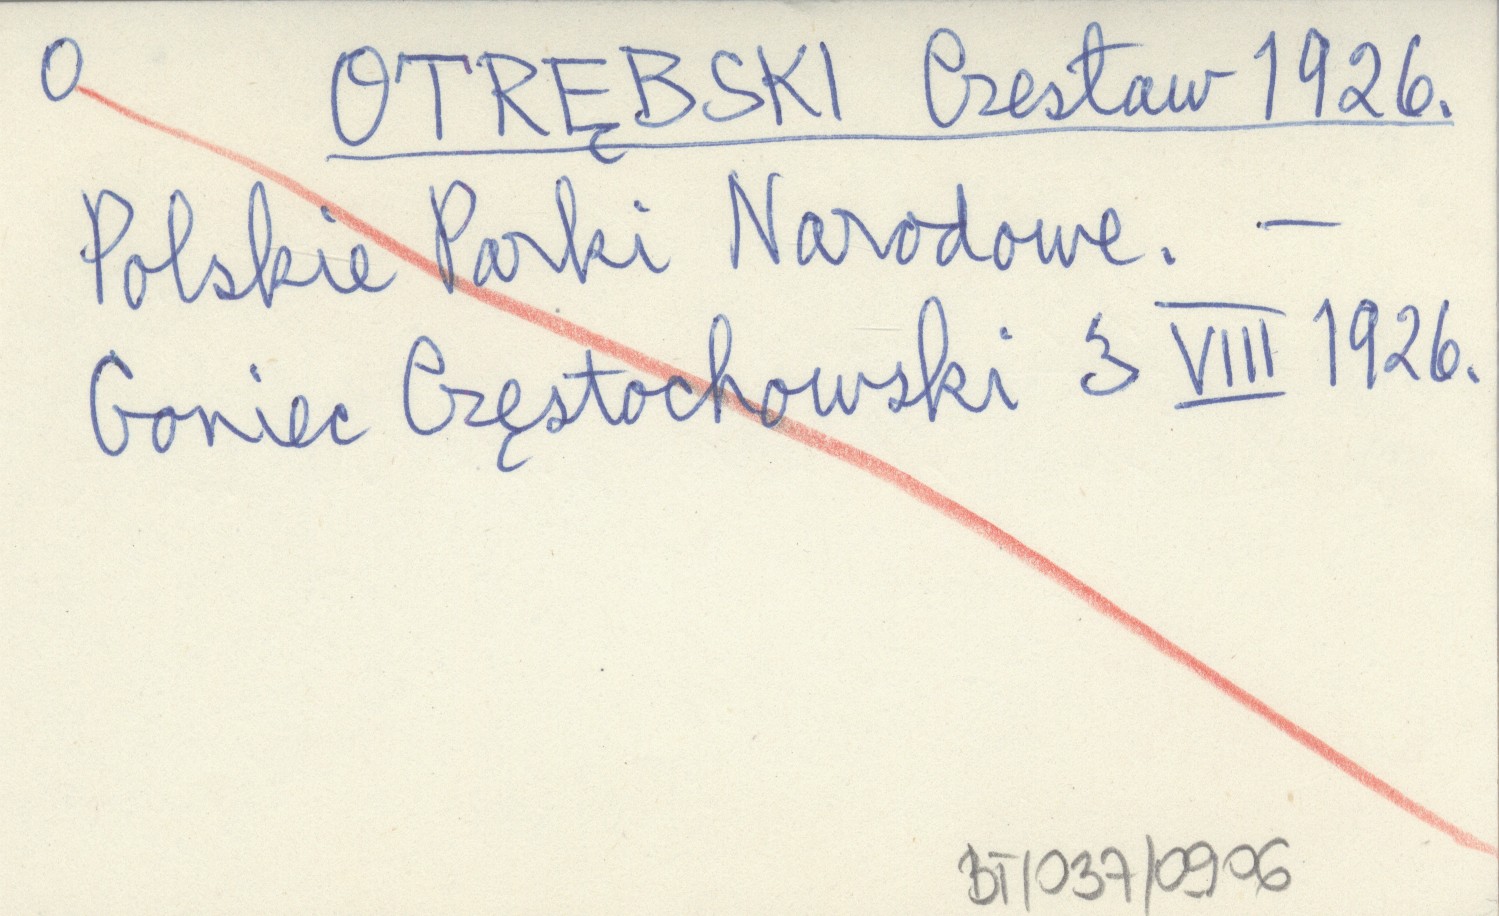 O OTRĘBSKI Czesław 1926.
Polskie Parki Narodowe. —
Goniec Częstochowski 3 VIII 1926.
BT/037/0906